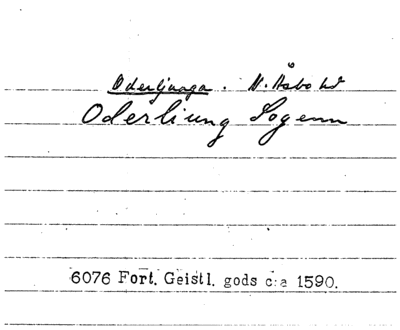 Oderljunga. N. Åsbo hd
Oderliung Sogenn
6076 Fort. Geistl. gods c:a 1590.